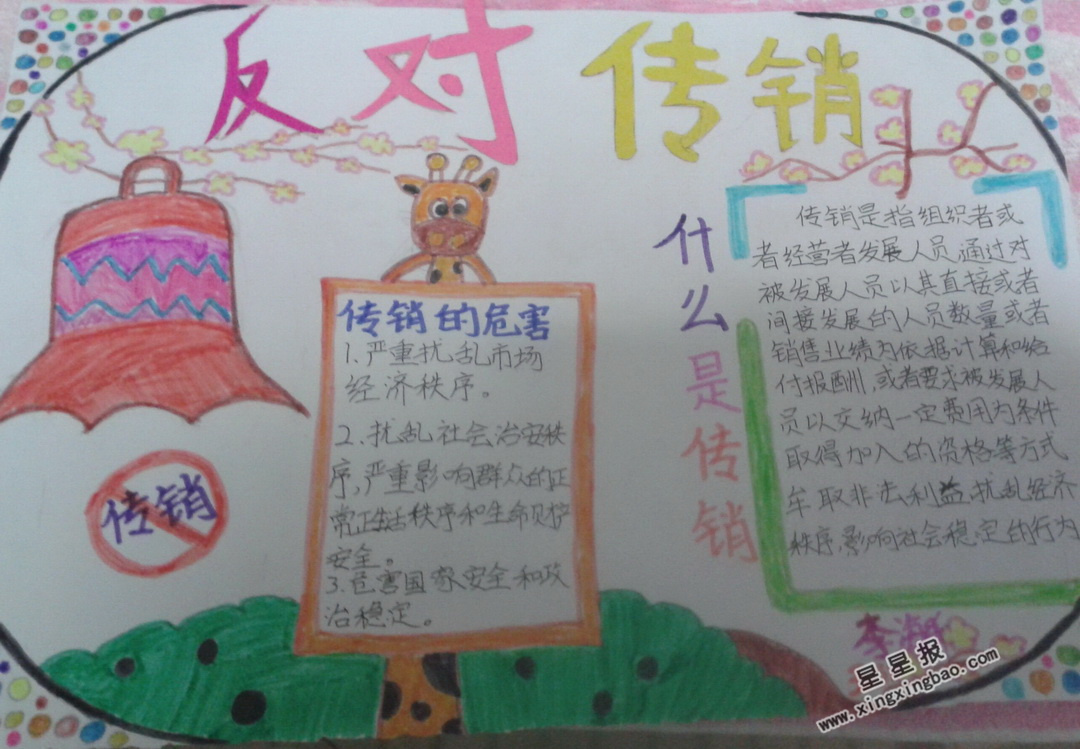 反对传销
传销
传销的危害
1.严重扰乱市场
经济秩序。
2.扰乱社会治安秩
序,严重影响群众的正
常正生活秩序和生命财产
安全。
3.危害国家安全和政
治稳定。
什么是传销
传销是指组织者或
者经营者发展人员,通过对
被发展人员以其直接或者
间接发展的人员数量或者
销售业绩为依据计算和给
付报酬,或者要求被发展人
员以交纳一定费用为条件
取得加入的资格等方式
牟取非法利益,扰乱经济
秩序,影响社会稳定的行为
星星报
www.xingxingbao.com